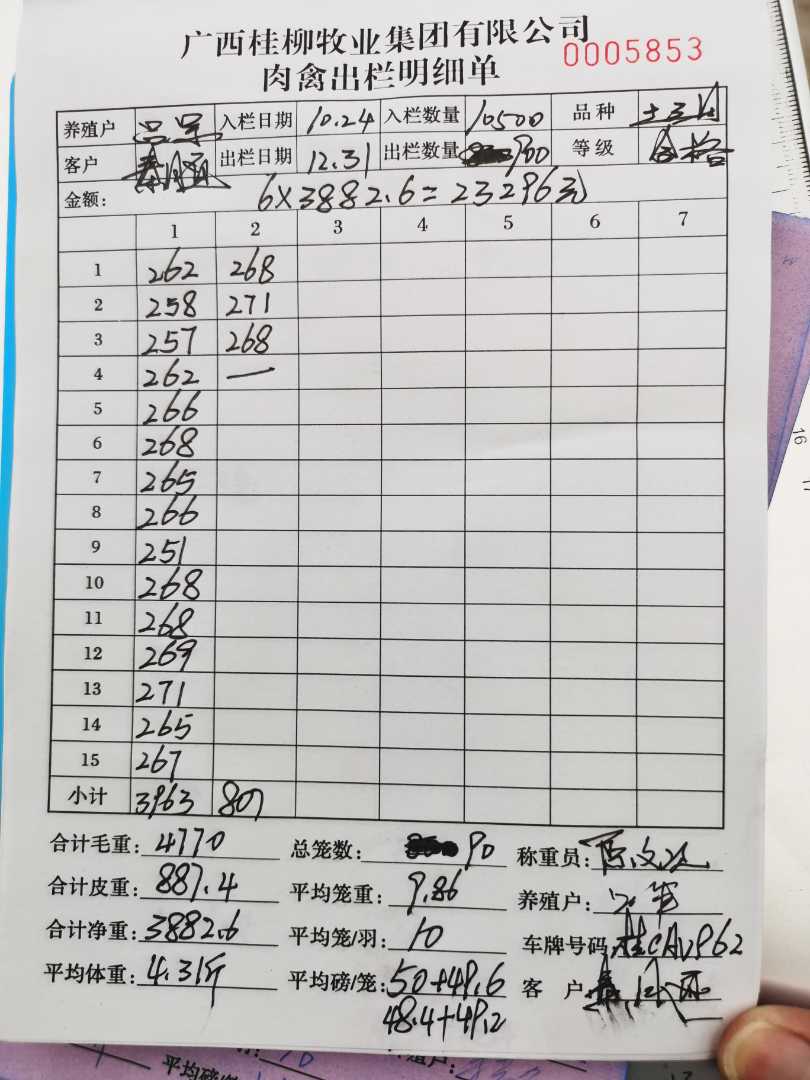 广西桂柳牧业集团有限公司
肉禽出栏明细单 0005853
养殖户 入栏日期 10.24 入栏数量 10500 品种
客户 出栏日期 12.31 出栏数量 900 等级 合格
金额: 6×3882.6=23296元
1 2 3 4 5 6 7
1 262 268
2 258 271
3 257 268
4 262 —
5 266
6 268
7 265
8 266
9 251
10 268
11 268
12 269
13 271
14 265
15 267
小计 3963 807
合计毛重: 4770 总笼数: 90 称重员:
合计皮重: 887.4 平均笼重: 9.86 养殖户:
合计净重: 3882.6 平均笼/羽: 10 车牌号码: 桂CAV962
平均体重: 4.31斤 平均磅/笼: 50+49.6 客 户
48.4+49.2
平均磅
16